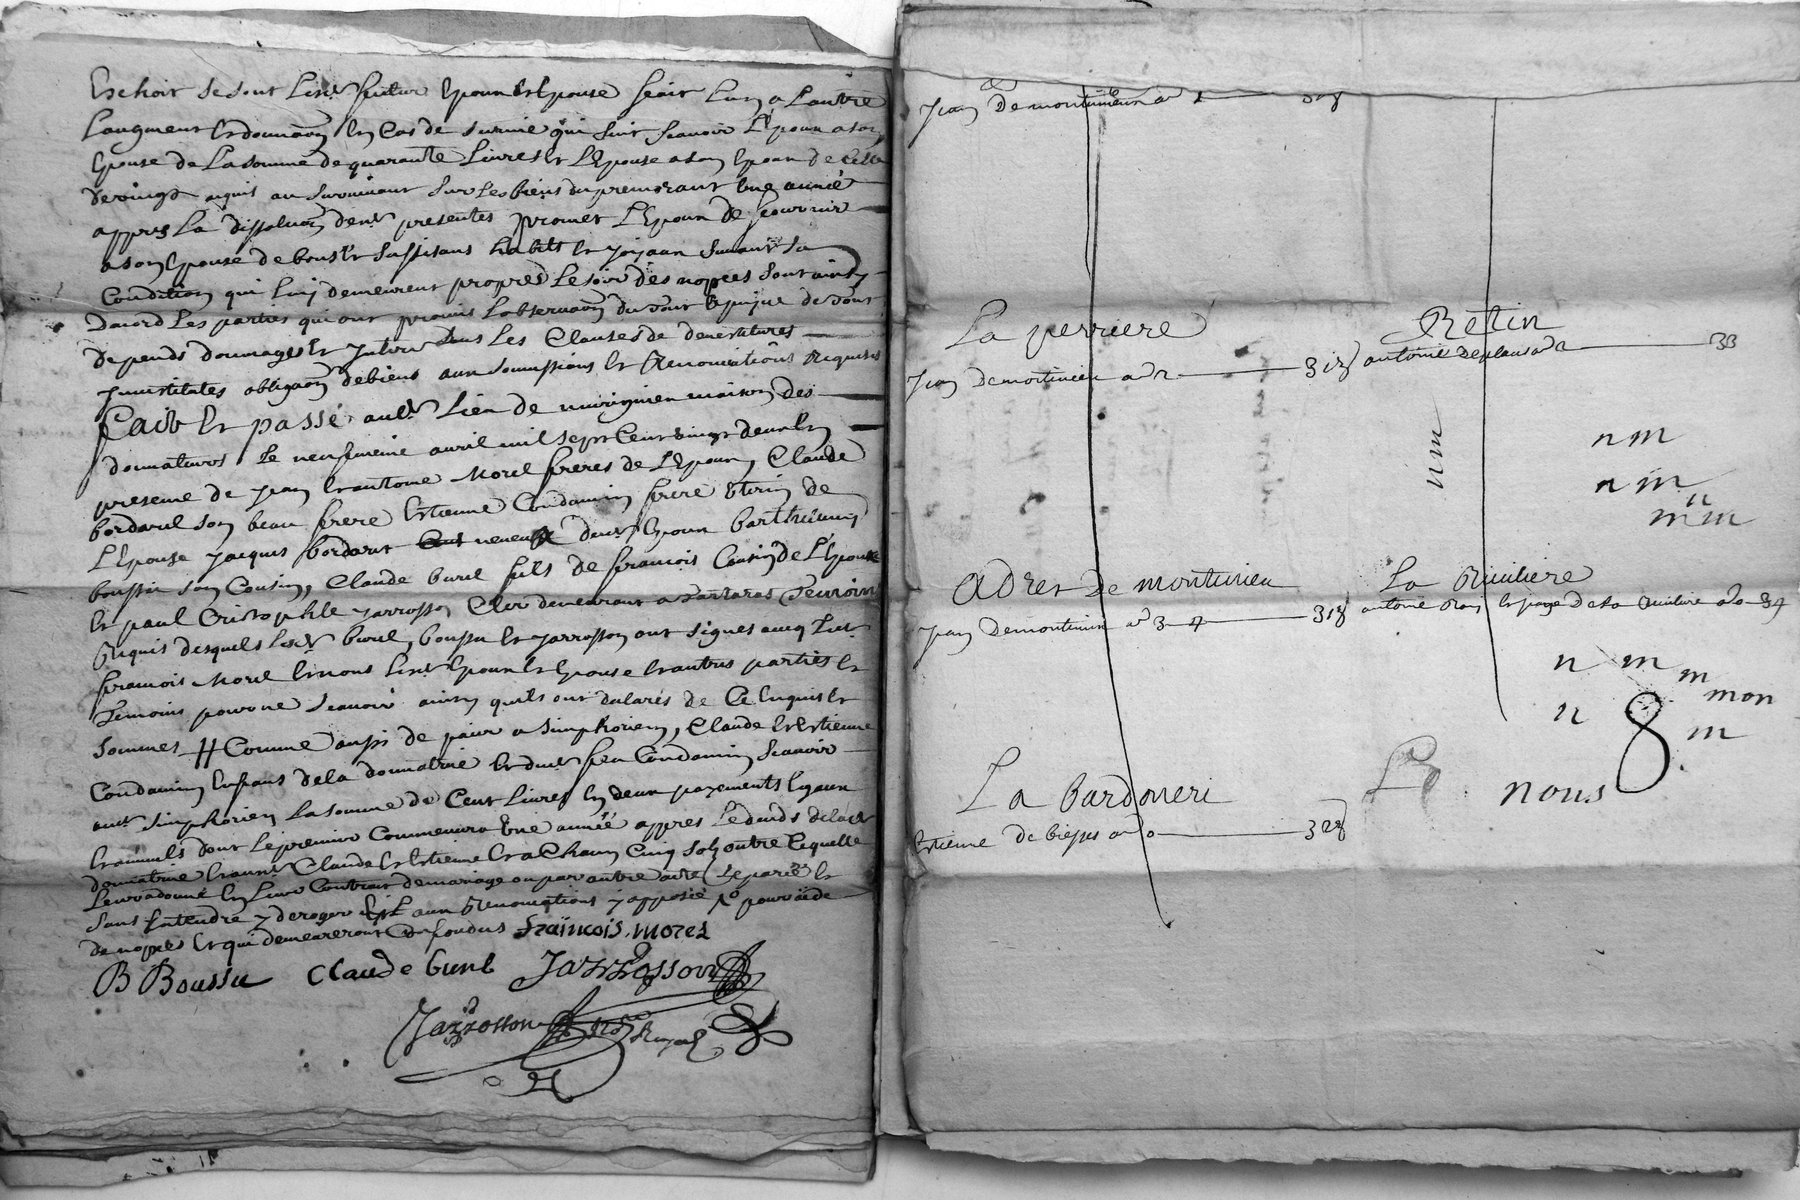 Eschoir se sont Lesd futur Epoux Et Epouse fait Lun a Lautre
Laugment Et donnaon En Cas de survie qui suit scauoir L'Epoux a son
Epouse de La somme de quarante Liures Et L'Epouse a son Epoux de Celle
de vingt aquis au suruiuant sur Les biens du premorant Une année
appres La dissoluon des presentes promet L'Epoux de fournir
a son Epouse de bons Et suffisans habits Et joyaux suiuant sa
Condition qui Luy demeurent propres Le soir des nopces sont ainsy
dacord Les parties qui ont promis Lobseruaon du sont a peyne de tous
depends dommages Et Interets sous Les Clauses de deuestitures
Inuestitutes obligaon de biens aux soumissions Et Renonciations Requises
faict Et passé aud Lieu de maison des
donnateurs Le neufuieme auril mil sept Cent vingt deux En
presence de Jean Et antoine Morel freres de L'Epoux, Claude
bordarel son beau frere Estienne Condamin frere Uterin de
L'Epouse Jacques bordaret neueu dud Epoux barthelemy
boussu son Cousin, Claude burel fils de francois Cousin de L'Epouse
Et paul Cristophle jarrosson Clerc demeurant a tarare Temoins
Requis desquels Lesd burel, boussu Et jarrosson ont signés auec Led
francois Morel Et non Lesd Epoux Et Epouse Et autres parties Et
Temoins pour ne scauoir ainsy quils ont declarés de Ce Enquis Et
sommes # Comme aussi de paier a simphorien, Claude Et Estienne
Condamin Enfans de la donnatrice Et dud feu Condamin scauoir
aud simphorien La somme de Cent Liures En deux payements Egaux
Et annuels dont Le premier Commencera Une année appres Le deceds de lad
donnatrice Et auxd Claude Et Estienne Et a Chacun Cinq sols outre Ce quelle
Leur a donné En Leur Contrat de mariage ou par autre acte
sans Entendre y deroger aux Renonciations y apposée
de nopces Et qui demeureront Confondus francois. morel
B Boussu Claude burel Jarrosson
Jarrosson Royal
Jean De montuineux
La perriere Retin
Jean De montuieu 318 antoine Deplaus 33
nm n m
n m
n
m m
Adres de montuieu La Riuliere
Jean Demontuieu 318 antoine 34
n m m
mon
n 8 m
La bardoneri nous
Estienne de 328